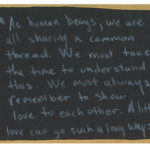 As human beings, we are
all sharing a common
thread. We must take
the time to understand
this. We must always
remember to show
love to each other. A little
love can go such a long way.